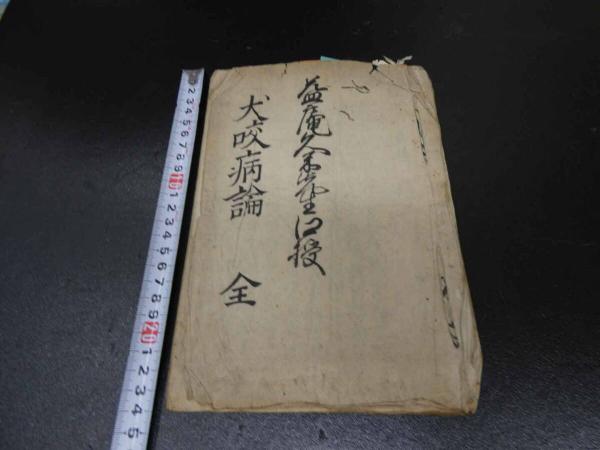 益庵久米先生口授
犬咬病論 全
2 3 4 5 6 7 8 9 10 1 2 3 4 5 6 7 8 9 20 1 2 3 4 5